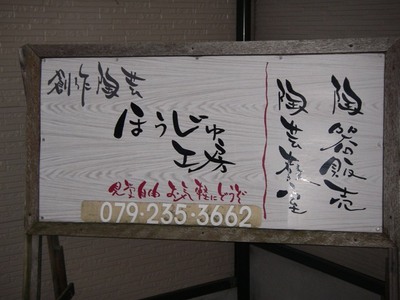 創作陶芸
ほうじゅ
工房
見学自由 お気軽にどうぞ
079-235-3662
陶器販売
陶芸教室